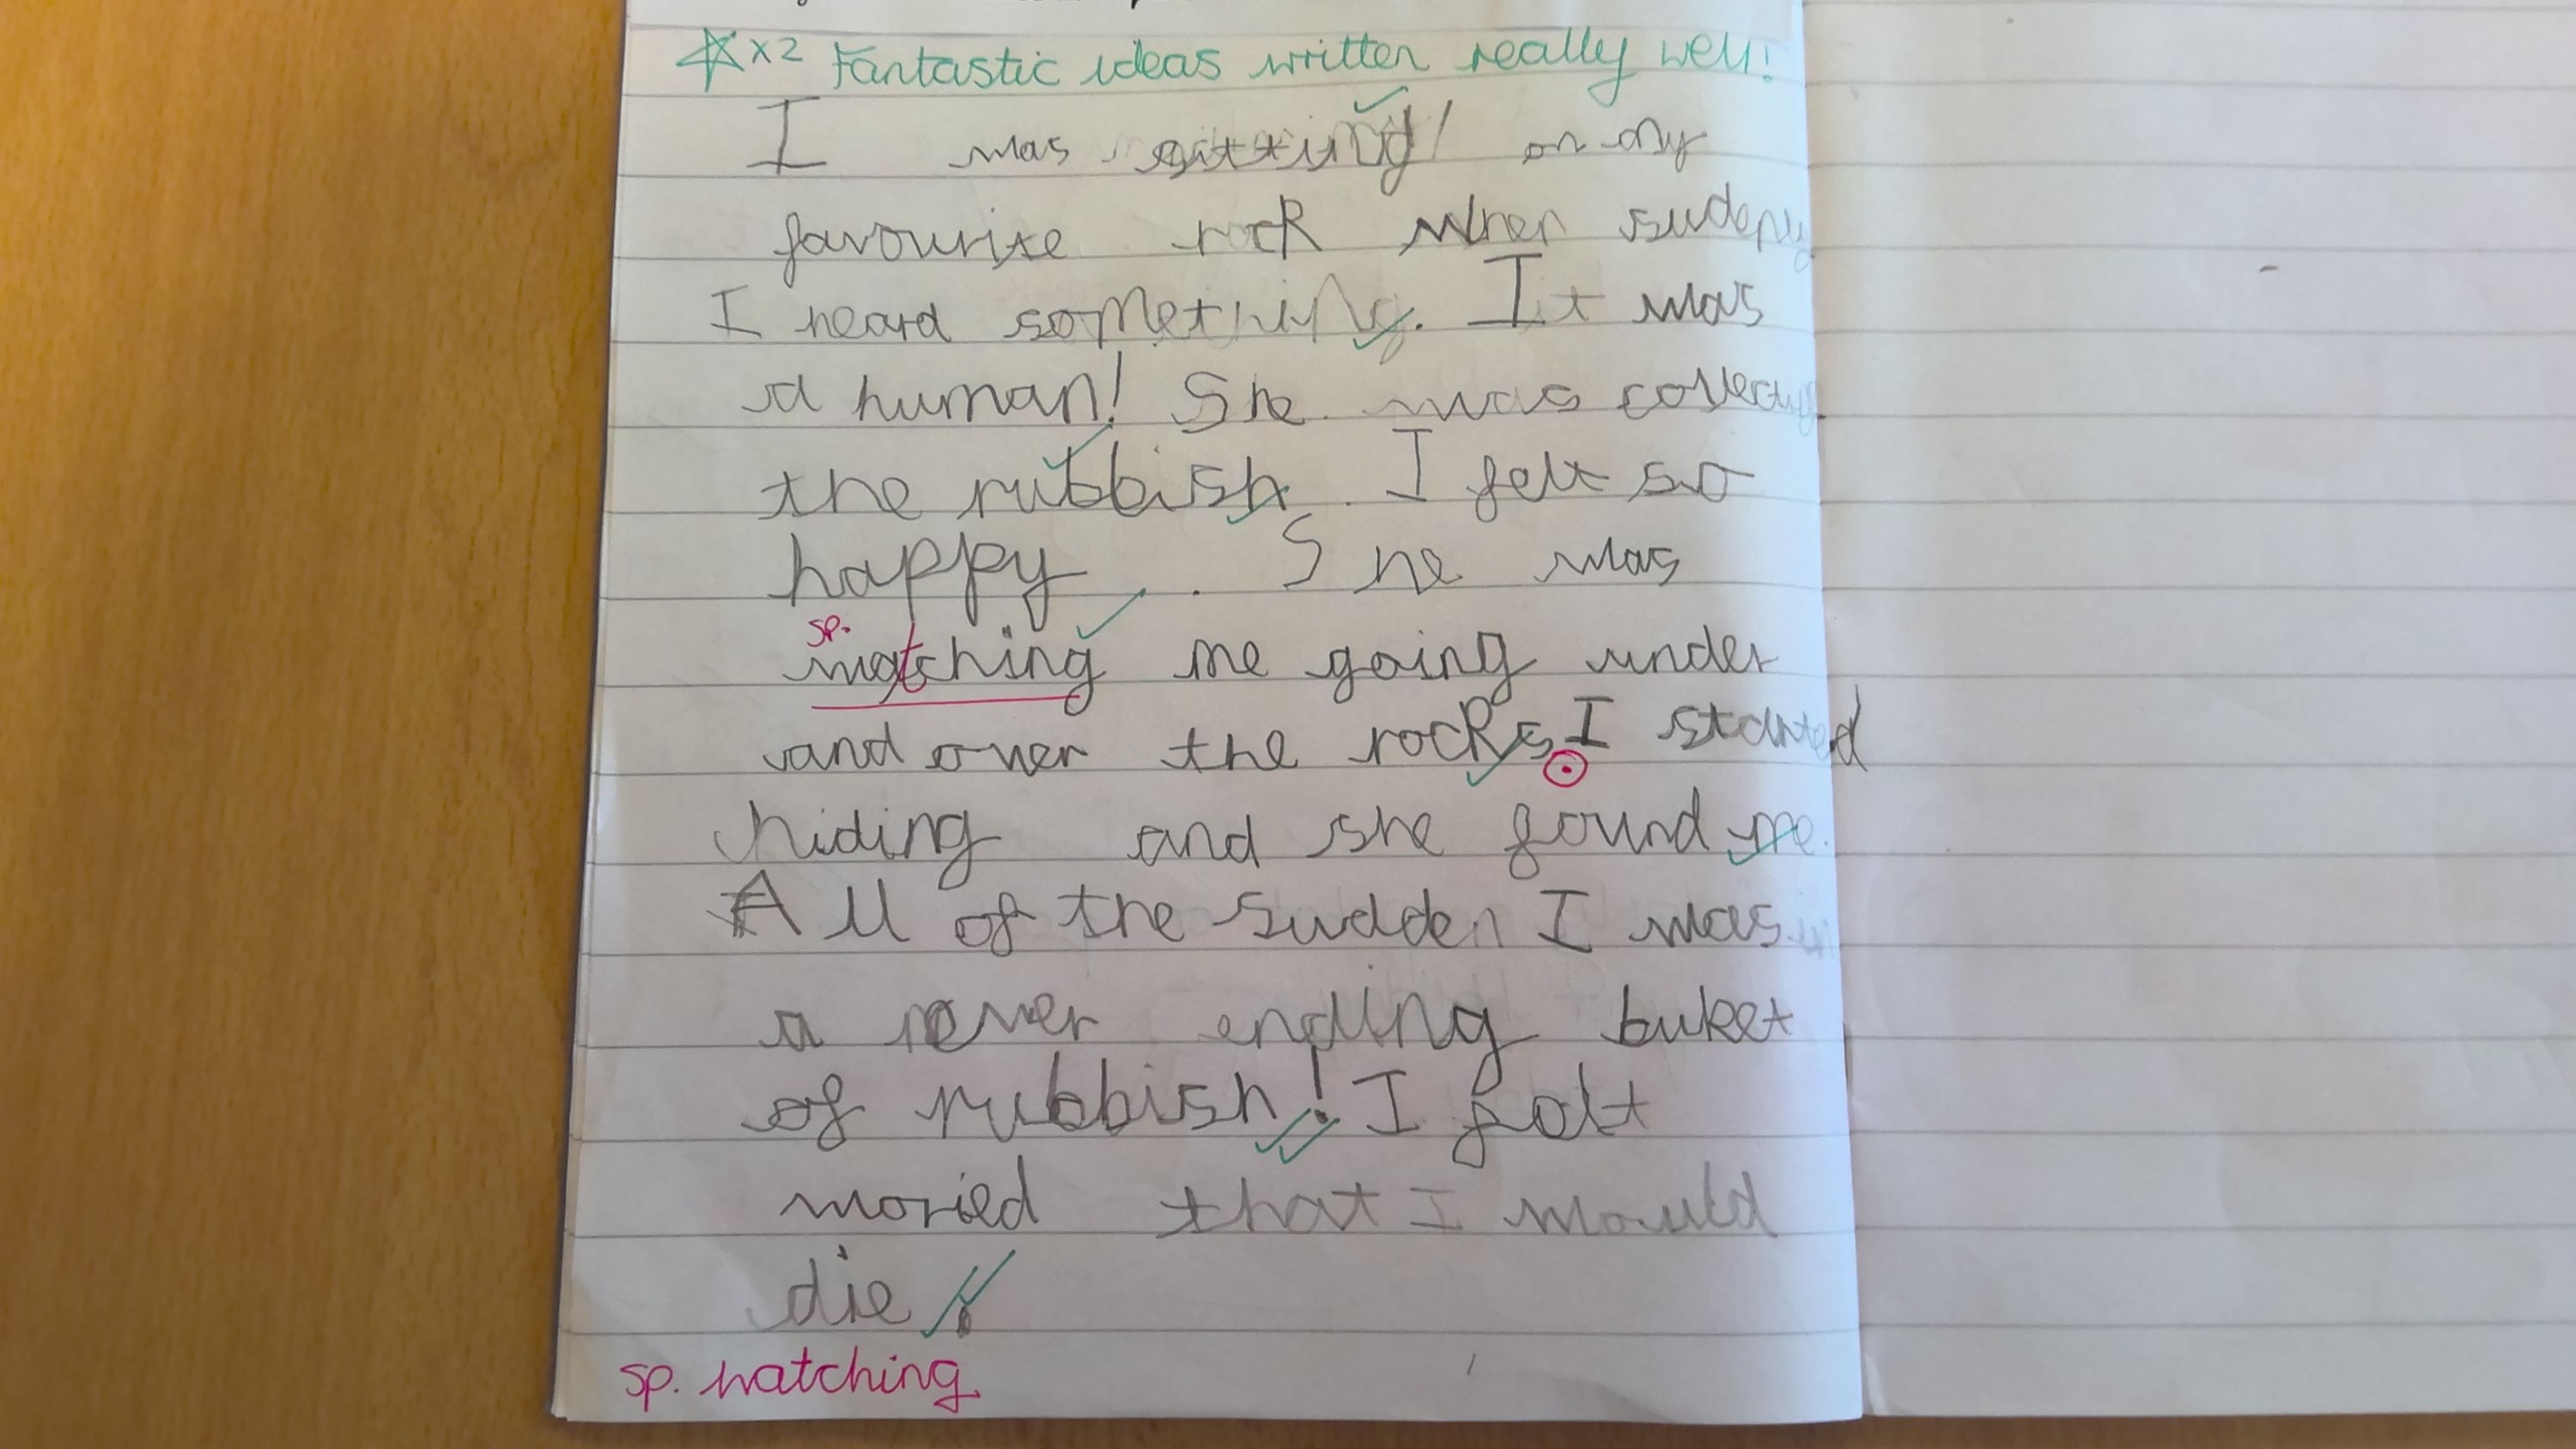 x2 Fantastic ideas written really well!
I was sitting on my
favourite rock when sudeny
I heard something. It was
a human! She was collecting
the rubbish. I felt so
happy. She was
sp.
watching me going under
and over the rocks. I started
hiding and she found me.
All of the sudden I was in
a never ending buket
of rubbish! I felt
woried that I would
die!
sp. watching